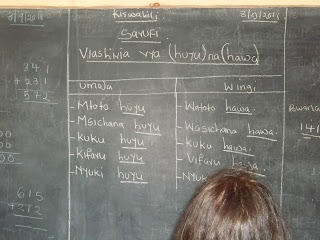 Kiswahili
3/9/2011
Sarufi
Viashiria vya (huyu) na (hawa)
Umoja
Wingi
- Mtoto huyu
- Watoto hawa.
- Msichana huyu
- Wasichana hawa.
- kuku huyu
- kuku hawa.
- Kifaru huyu
- Vifaru hawa
- Nyuki huyu
- Nyuki
341
+ 231
572
615
+ 212